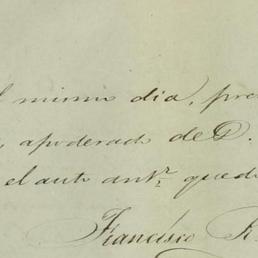 mismo dia, pre
, apoderado de D.
el auto antr. qued
Francisco R